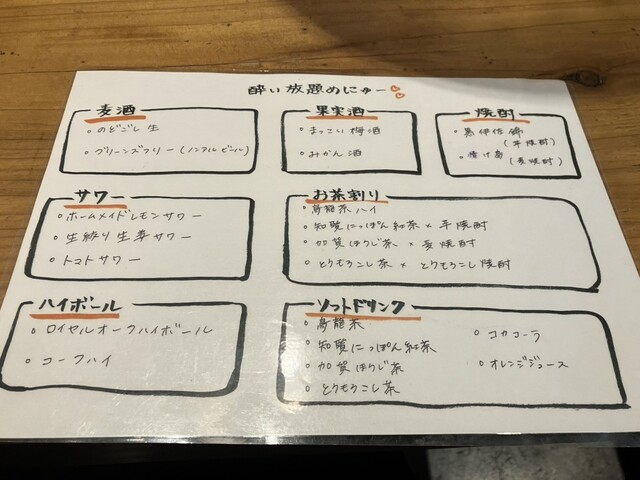 酔い放題めにゅー
麦酒
のどごし生
グリーンズフリー(ノンアルビール)
果実酒
まっこい梅酒
みかん酒
焼酎
黒伊佐錦
(芋焼酎)
情け島
(麦焼酎)
サワー
ホームメイドレモンサワー
生絞り生姜サワー
トマトサワー
お茶割り
烏龍茶ハイ
知覧にっぽん紅茶×芋焼酎
加賀ほうじ茶×麦焼酎
とうもろこし茶×とうもろこし焼酎
ハイボール
ロイヤルオークハイボール
コークハイ
ソフトドリンク
烏龍茶
知覧にっぽん紅茶
加賀ほうじ茶
とうもろこし茶
コカコーラ
オレンジジュース